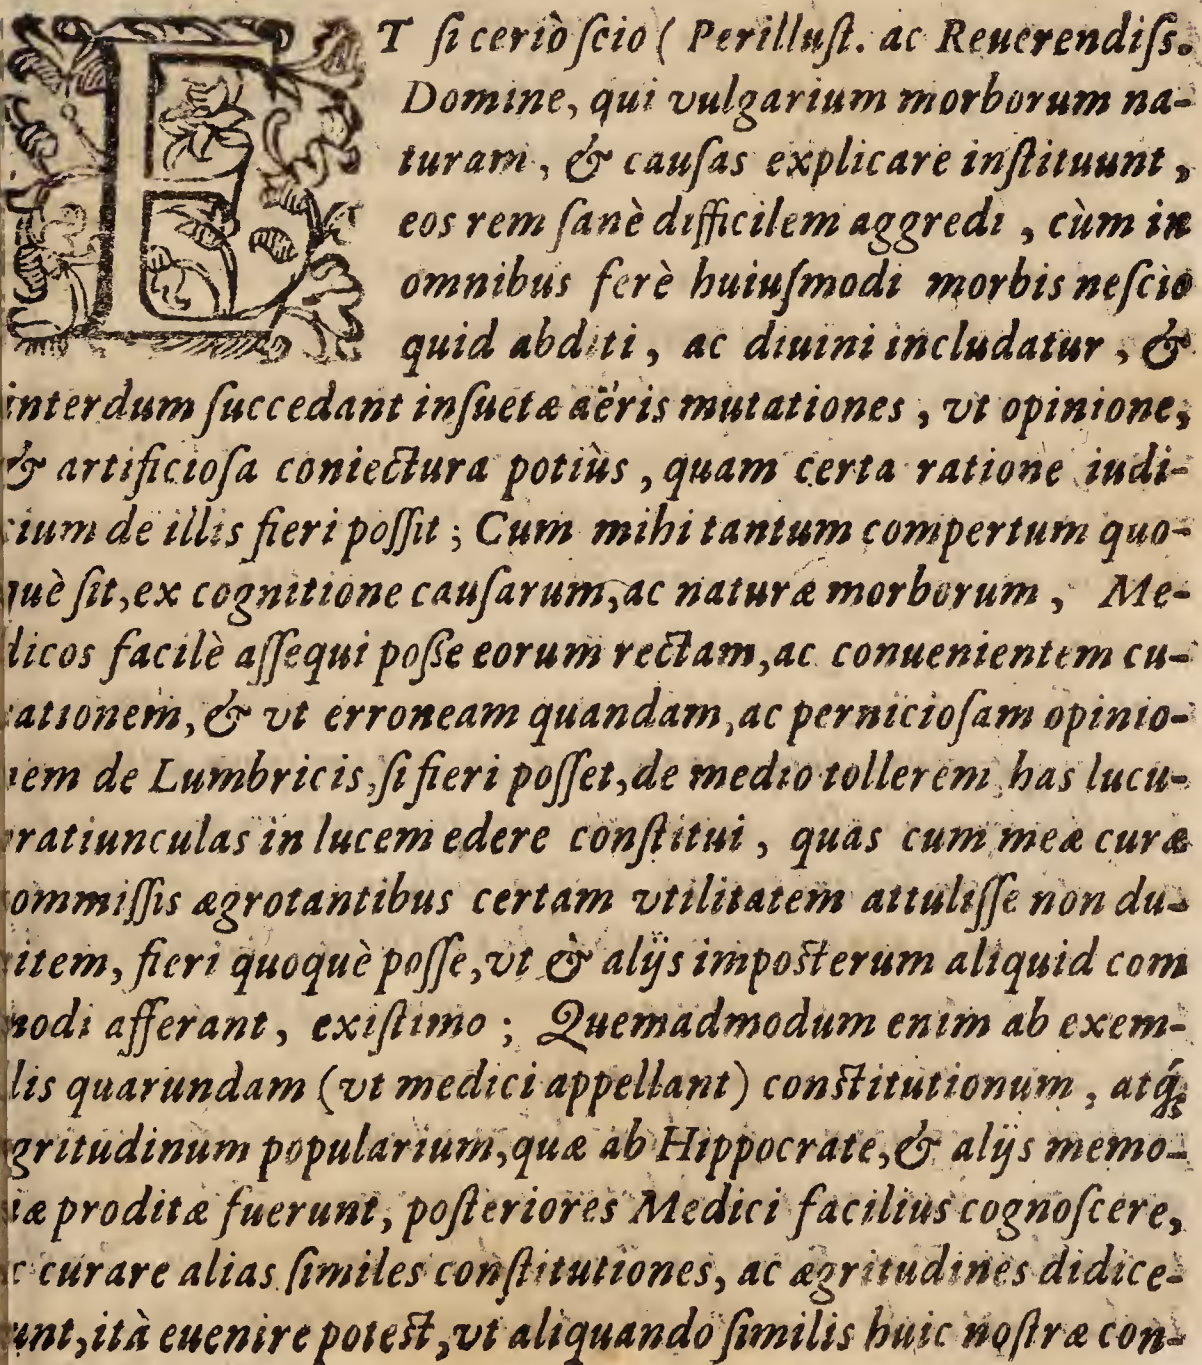 ET ſi certò ſcio ( Perilluſt. ac Reuerendiſs.
Domine, qui vulgarium morborum na-
turam, & cauſas explicare inſtituunt,
eos rem ſanè difficilem aggredi, cùm in
omnibus ferè huiuſmodi morbis neſcio
quid abditi, ac diuini includatur, &
interdum ſuccedant inſuetæ aëris mutationes, vt opinione,
& artificioſa coniectura potiùs, quam certa ratione iudi-
cium de illis fieri poſſit; Cum mihi tantum compertum quo-
què ſit, ex cognitione cauſarum, ac naturæ morborum, Me-
dicos facilè aſſequi poſſe eorum rectam, ac conuenientem cu-
rationem, & vt erroneam quandam, ac pernicioſam opinio-
nem de Lumbricis, ſi fieri poſſet, de medio tollerem, has lucu-
bratiunculas in lucem edere conſtitui, quas cum meæ curæ
commiſſis ægrotantibus certam vtilitatem attuliſſe non du-
bitem, fieri quoquè poſſe, vt & alijs impoſterum aliquid com
modi afferant, exiſtimo; Quemadmodum enim ab exem-
plis quarundam (vt medici appellant) conſtitutionum, atq́;
ægritudinum popularium, quæ ab Hippocrate, & alijs memo-
riæ proditæ fuerunt, poſteriores Medici facilius cognoſcere,
ac curare alias ſimiles conſtitutiones, ac ægritudines didice-
runt, ità euenire poteſt, vt aliquando ſimilis huic noſtræ con-